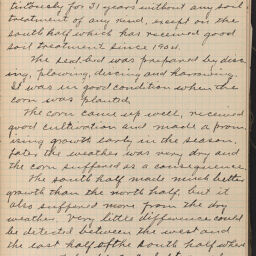 tinuously for 31 years without any soil
treatment of any kind, except on the
south half which has received good
soil treatment since 1904.
The seed bed was prepared by disc-
ing, plowing, discing and harrowing.
It was in good condition when the
corn was planted,
The corn came up well, received
good cultivation and made a prom-
ising growth early in the season,
later the weather was very dry and
the corn suffered as a consequence.
The south half made much better
growth than the north half, but it
also suffered more from the dry
weather. Very little difference could
be detected between the west and
the east half of the south half where